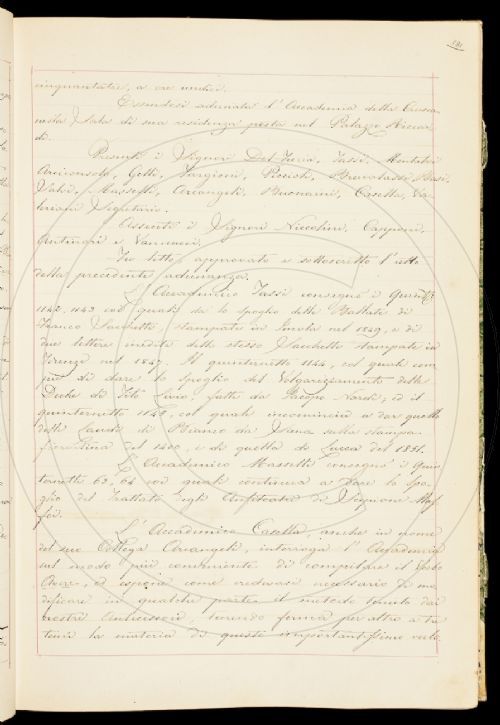 181
cinquantatre, a ore undici.
Essendosi adunata l'Accademia della Crusca
nella Sala di sua residenza posta nel Palazzo Riccar
di.
Presenti i Signori Del Furia, Tassi,
Arcivescovo, Gelli, Targioni, Bravalosso, Basi,
Salvi, Massetti, Arcangeli, Buonarri, Casella, Va
leriani Segretario.
Assenti i Signori Niccolini, Capponi,
Antinori e Vannucci.
Fu letto, approvato e sottoscritto l'atto
della precedente adunanza.
L'Accademico Tassi consegnò i Quintti
1142, 1143 coi quali dà lo spoglio delle Ballate di
Franco Sacchetti, stampate in Imola nel 1849, e di
due lettere inedite dello stesso Sacchetti stampate in
Firenze nel 1847. Il quinternetto 1144, col quale com
pie di dare lo spoglio del Volgarizzamento delle
Deche di Tito Livio, fatto da Jacopo Nardi; ed il
quinternetto 1145, col quale incomincia a dar quello
delle Laudi di Bianco da Siena sulla stampa
fiorentina del 1400, e di quella di Lucca del 1851.
L'Accademico Massetti consegnò i Quin
ternetti 63, 64 coi quali continua a dare lo spo
glio del Trattato degli Anfiteatri di Scipione Maf
fei.
L'Accademico Casella, anche in nome
del suo Collega Arcangeli, interroga l'Accademia
sul modo più conveniente di compilare il Verbo
Avere, ed espone come credessi necessario di mo
dificare in qualche parte il metodo tenuto dai
nostri Antecessori, tenendo ferma per altro a tu
tta la materia di questo importantissimo verbo